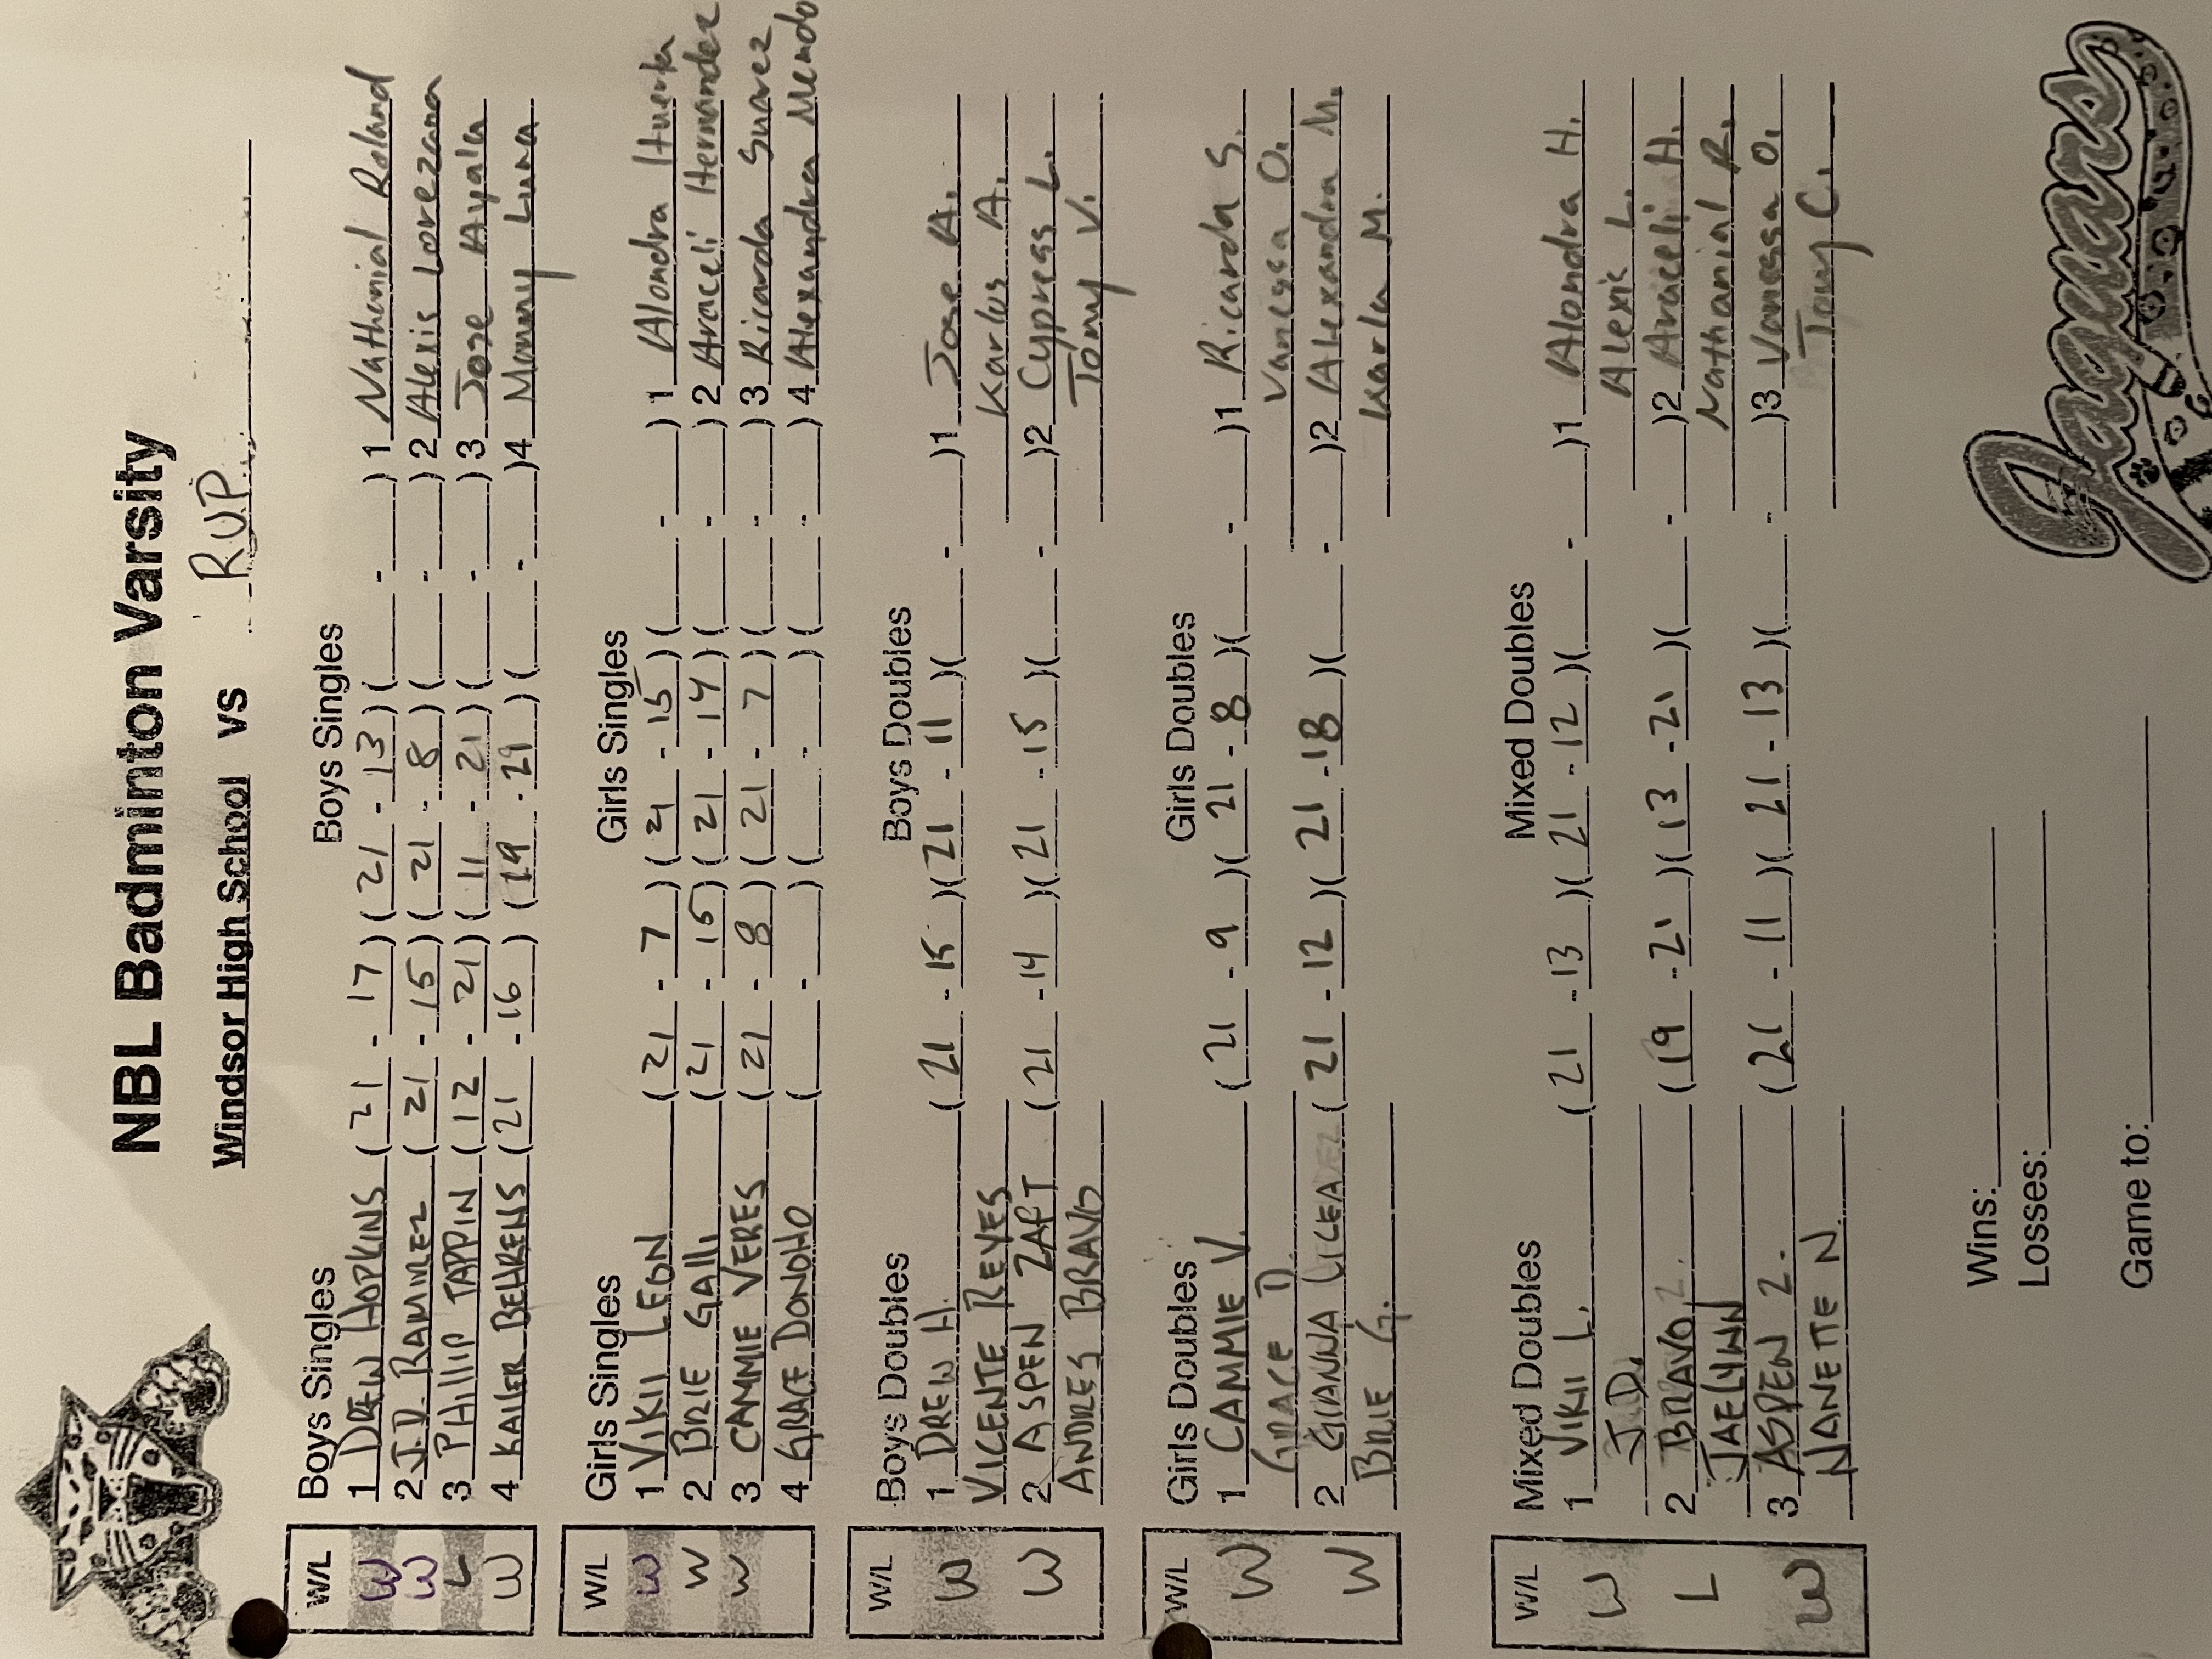 NBL Badminton Varsity
Windsor High School vs RUP
W/L Boys Singles Boys Singles
W 1 DREW HOPKINS (21 - 17) (21 - 13) ( - ) 1 Nathanial Roland
W 2 J.D. RAMIREZ (21 - 15) (21 - 8) ( - ) 2 Alexis Lorezana
L 3 PHILLIP TAPPIN (12 - 21) (11 - 21) ( - ) 3 Jose Ayala
W 4 KAILER BEHRENS (21 - 16) (19 - 21) ( - ) 4 Manny Luna
W/L Girls Singles Girls Singles
W 1 VIKII LEON (21 - 7) (21 - 15) ( - ) 1 Alondra Huerta
W 2 BRIE GALLI (21 - 15) (21 - 14) ( - ) 2 Araceli Hernandez
W 3 CAMMIE VERES (21 - 8) (21 - 7) ( - ) 3 Ricarda Suarez
4 GRACE DONOHO ( - ) ( - ) ( - ) 4 Alexandra Mendo
W/L Boys Doubles Boys Doubles
W 1 DREW H. (21 - 15)(21 - 11)( - )1 Jose A.
VICENTE REYES Karlos A.
W 2 ASPEN ZAFT (21 - 14)(21 - 15)( - )2 Cypress L.
ANDRES BRAVO Tony V.
W/L Girls Doubles Girls Doubles
W 1 CAMMIE V. (21 - 9)(21 - 8)( - )1 Ricarda S.
GRACE D Vanessa O.
W 2 GIANNA (21 - 12)(21 - 18)( - )2 Alexandra M.
BRIE G. Karla M.
W/L Mixed Doubles Mixed Doubles
W 1 VIKII L. (21 - 13)(21 - 12)( - )1 Alondra H.
J.D. Alexis L.
L 2 BRAVO (19 - 21)(13 - 21)( - )2 Araceli H.
JAELYNN Nathanial R.
W 3 ASPEN Z. (21 - 11)(21 - 13)( - )3 Vanessa O.
NANETTE N. Tony C.
Wins:
Losses:
Game to:
Jaguars